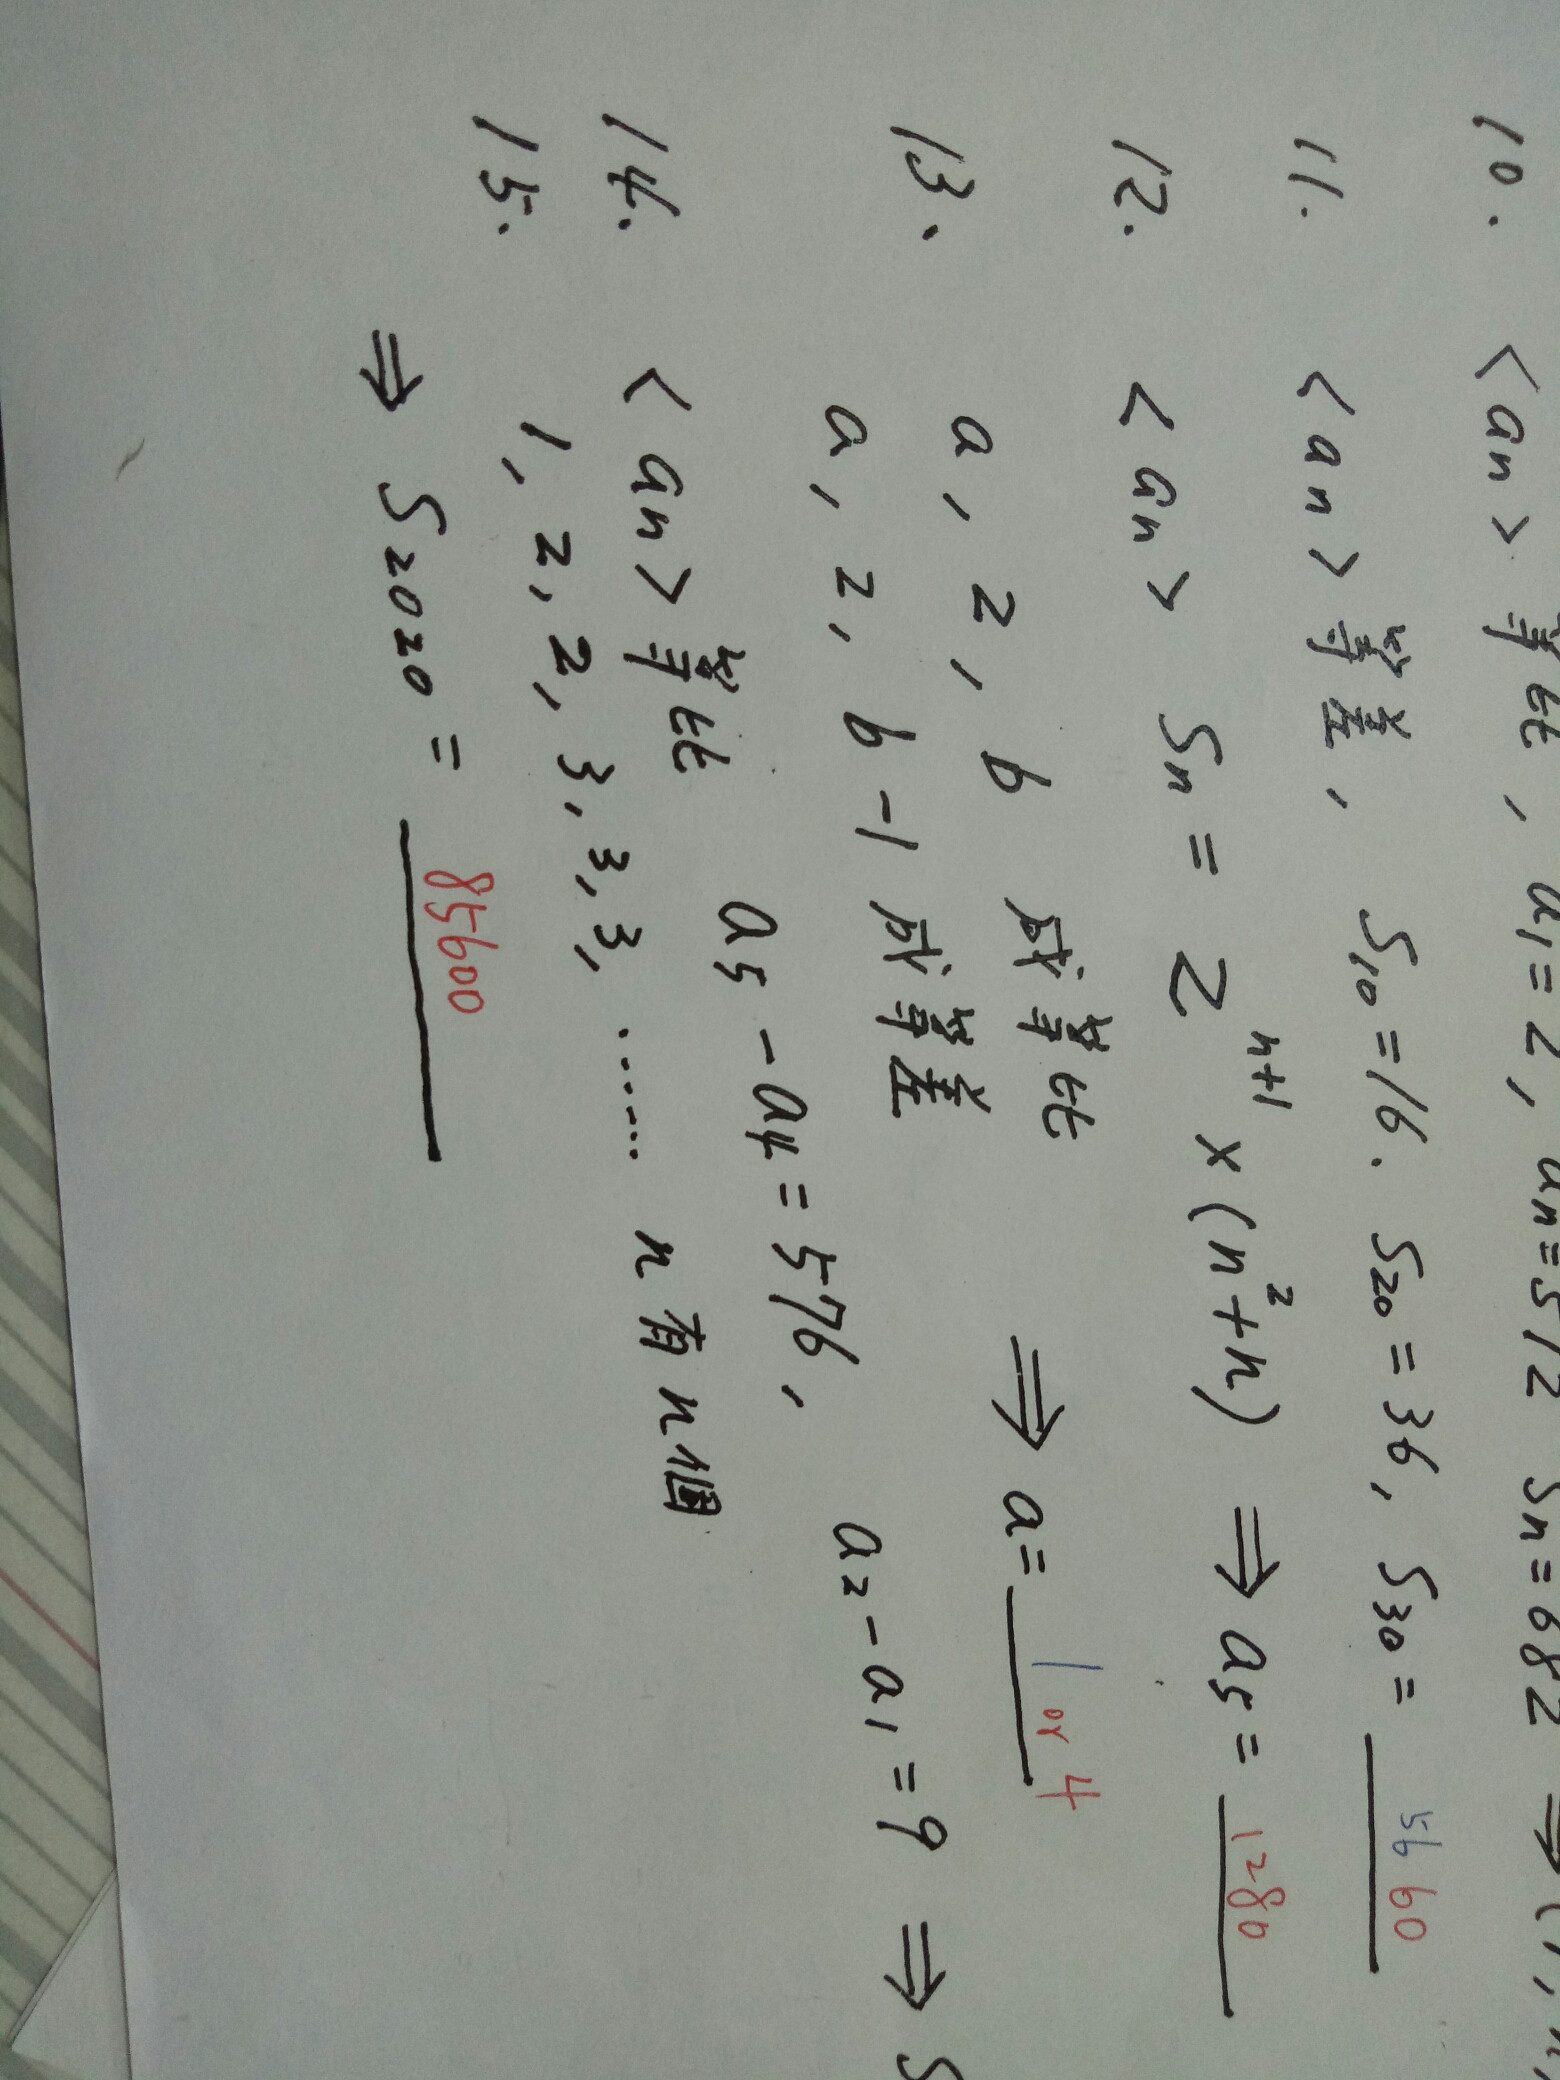 10. <an> 等比, a₁=2, an=512 Sn=682 ⇒ (r,n,
11. <an> 等差, S₁₀=16. S₂₀=36, S₃₀= 56 60
12. <an> Sn = 2ⁿ⁺¹ × (n²+n) ⇒ a₅= 1280
13、 a, 2, b 成等比 ⇒ a= 1 or 4
a, 2, b-1 成等差
14. <an> 等比 a₅-a₄=576, a₂-a₁=9 ⇒ S
15. 1, 2, 2, 3, 3, 3, …… n有n個
⇒ S₂₀₂₀ = 85600